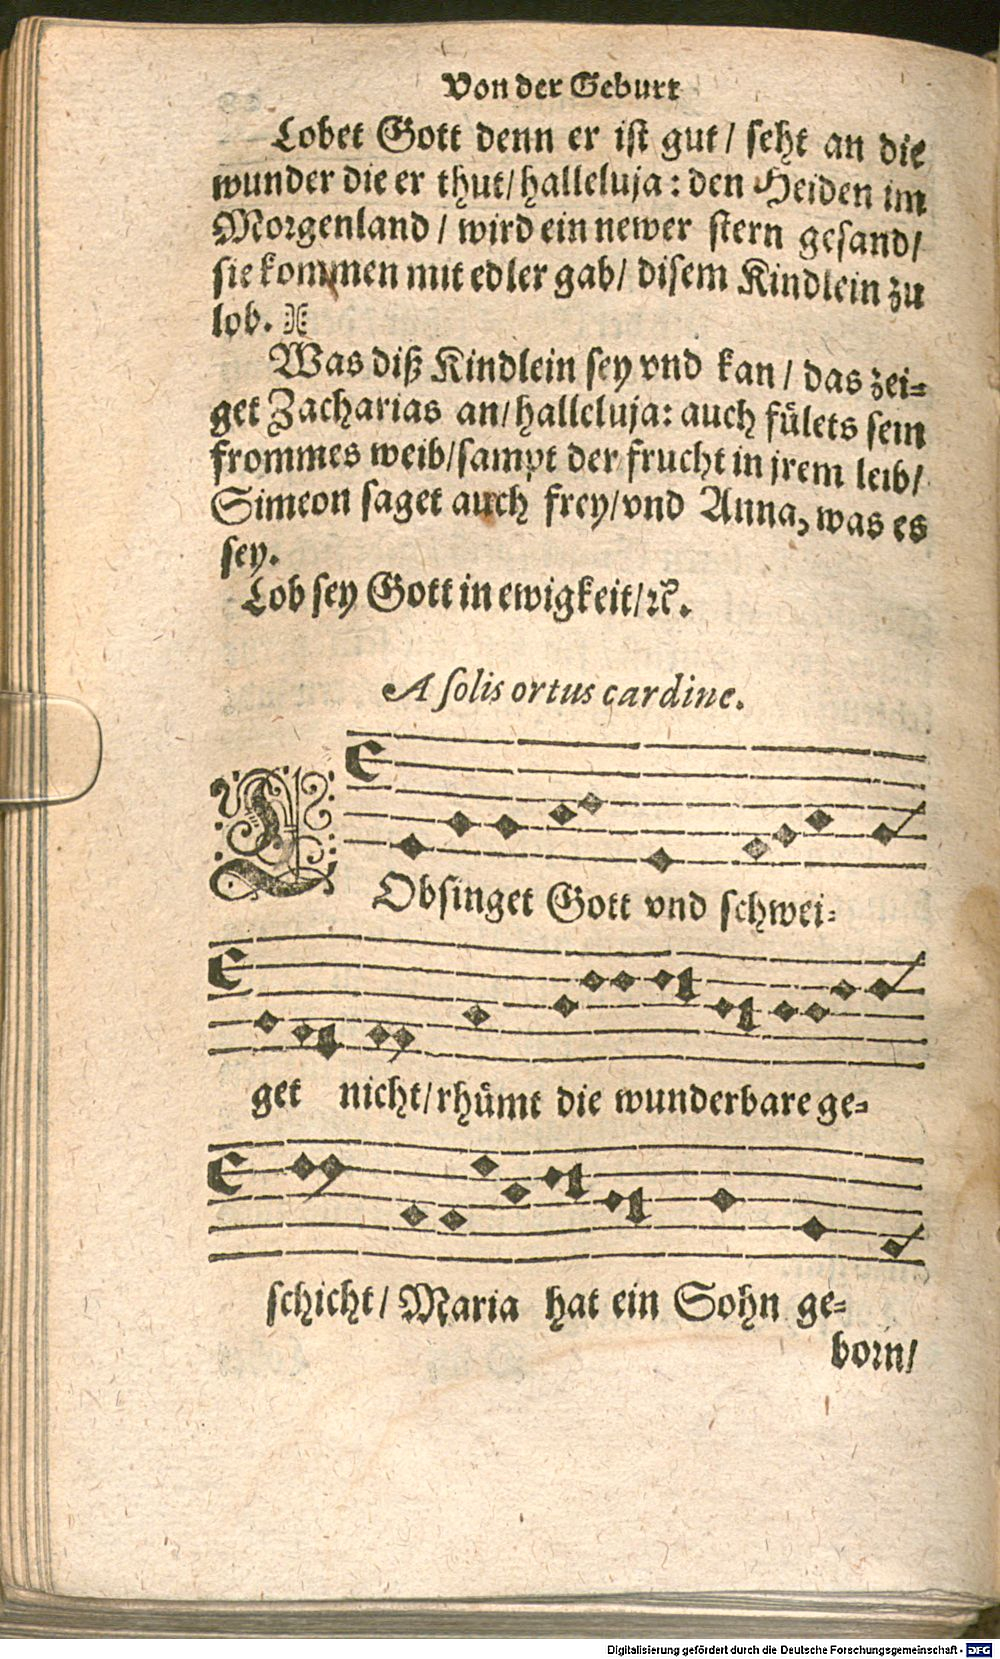 Von der Geburt
Lobet Gott denn er ist gut/ seht an die
wunder die er thut/ halleluja: den Heiden im
Morgenland/ wird ein newer stern gesand/
sie kommen mit edler gab/ disem Kindlein zu
lob.
Was diß Kindlein sey vnd kan/ das zei=
get Zacharias an/ halleluja: auch fülets sein
frommes weib/ sampt der frucht in jrem leib/
Simeon saget auch frey/ vnd Anna, was es
sey.
Lob sey Gott in ewigkeit/ ꝛc.
A solis ortus cardine.
LObsinget Gott vnd schwei=
get nicht/ rhümt die wunderbare ge=
schicht/ Maria hat ein Sohn ge=
born/
Digitalisierung gefördert durch die Deutsche Forschungsgemeinschaft - DFG